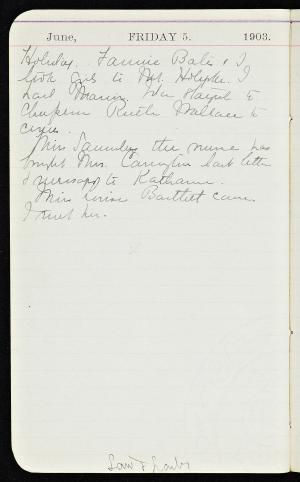 June, FRIDAY 5. 1903.
Holiday. Fannie Bates & I
took girls to Mt. Holyoke. I
had Marion. Ida stayed to
chaperon Ruth Wallace to
circus.
Miss Saunders the nurse has
brought Mrs. Carrington last letter
& message to Katharine.
Miss Louise Bartlett came
I met her.